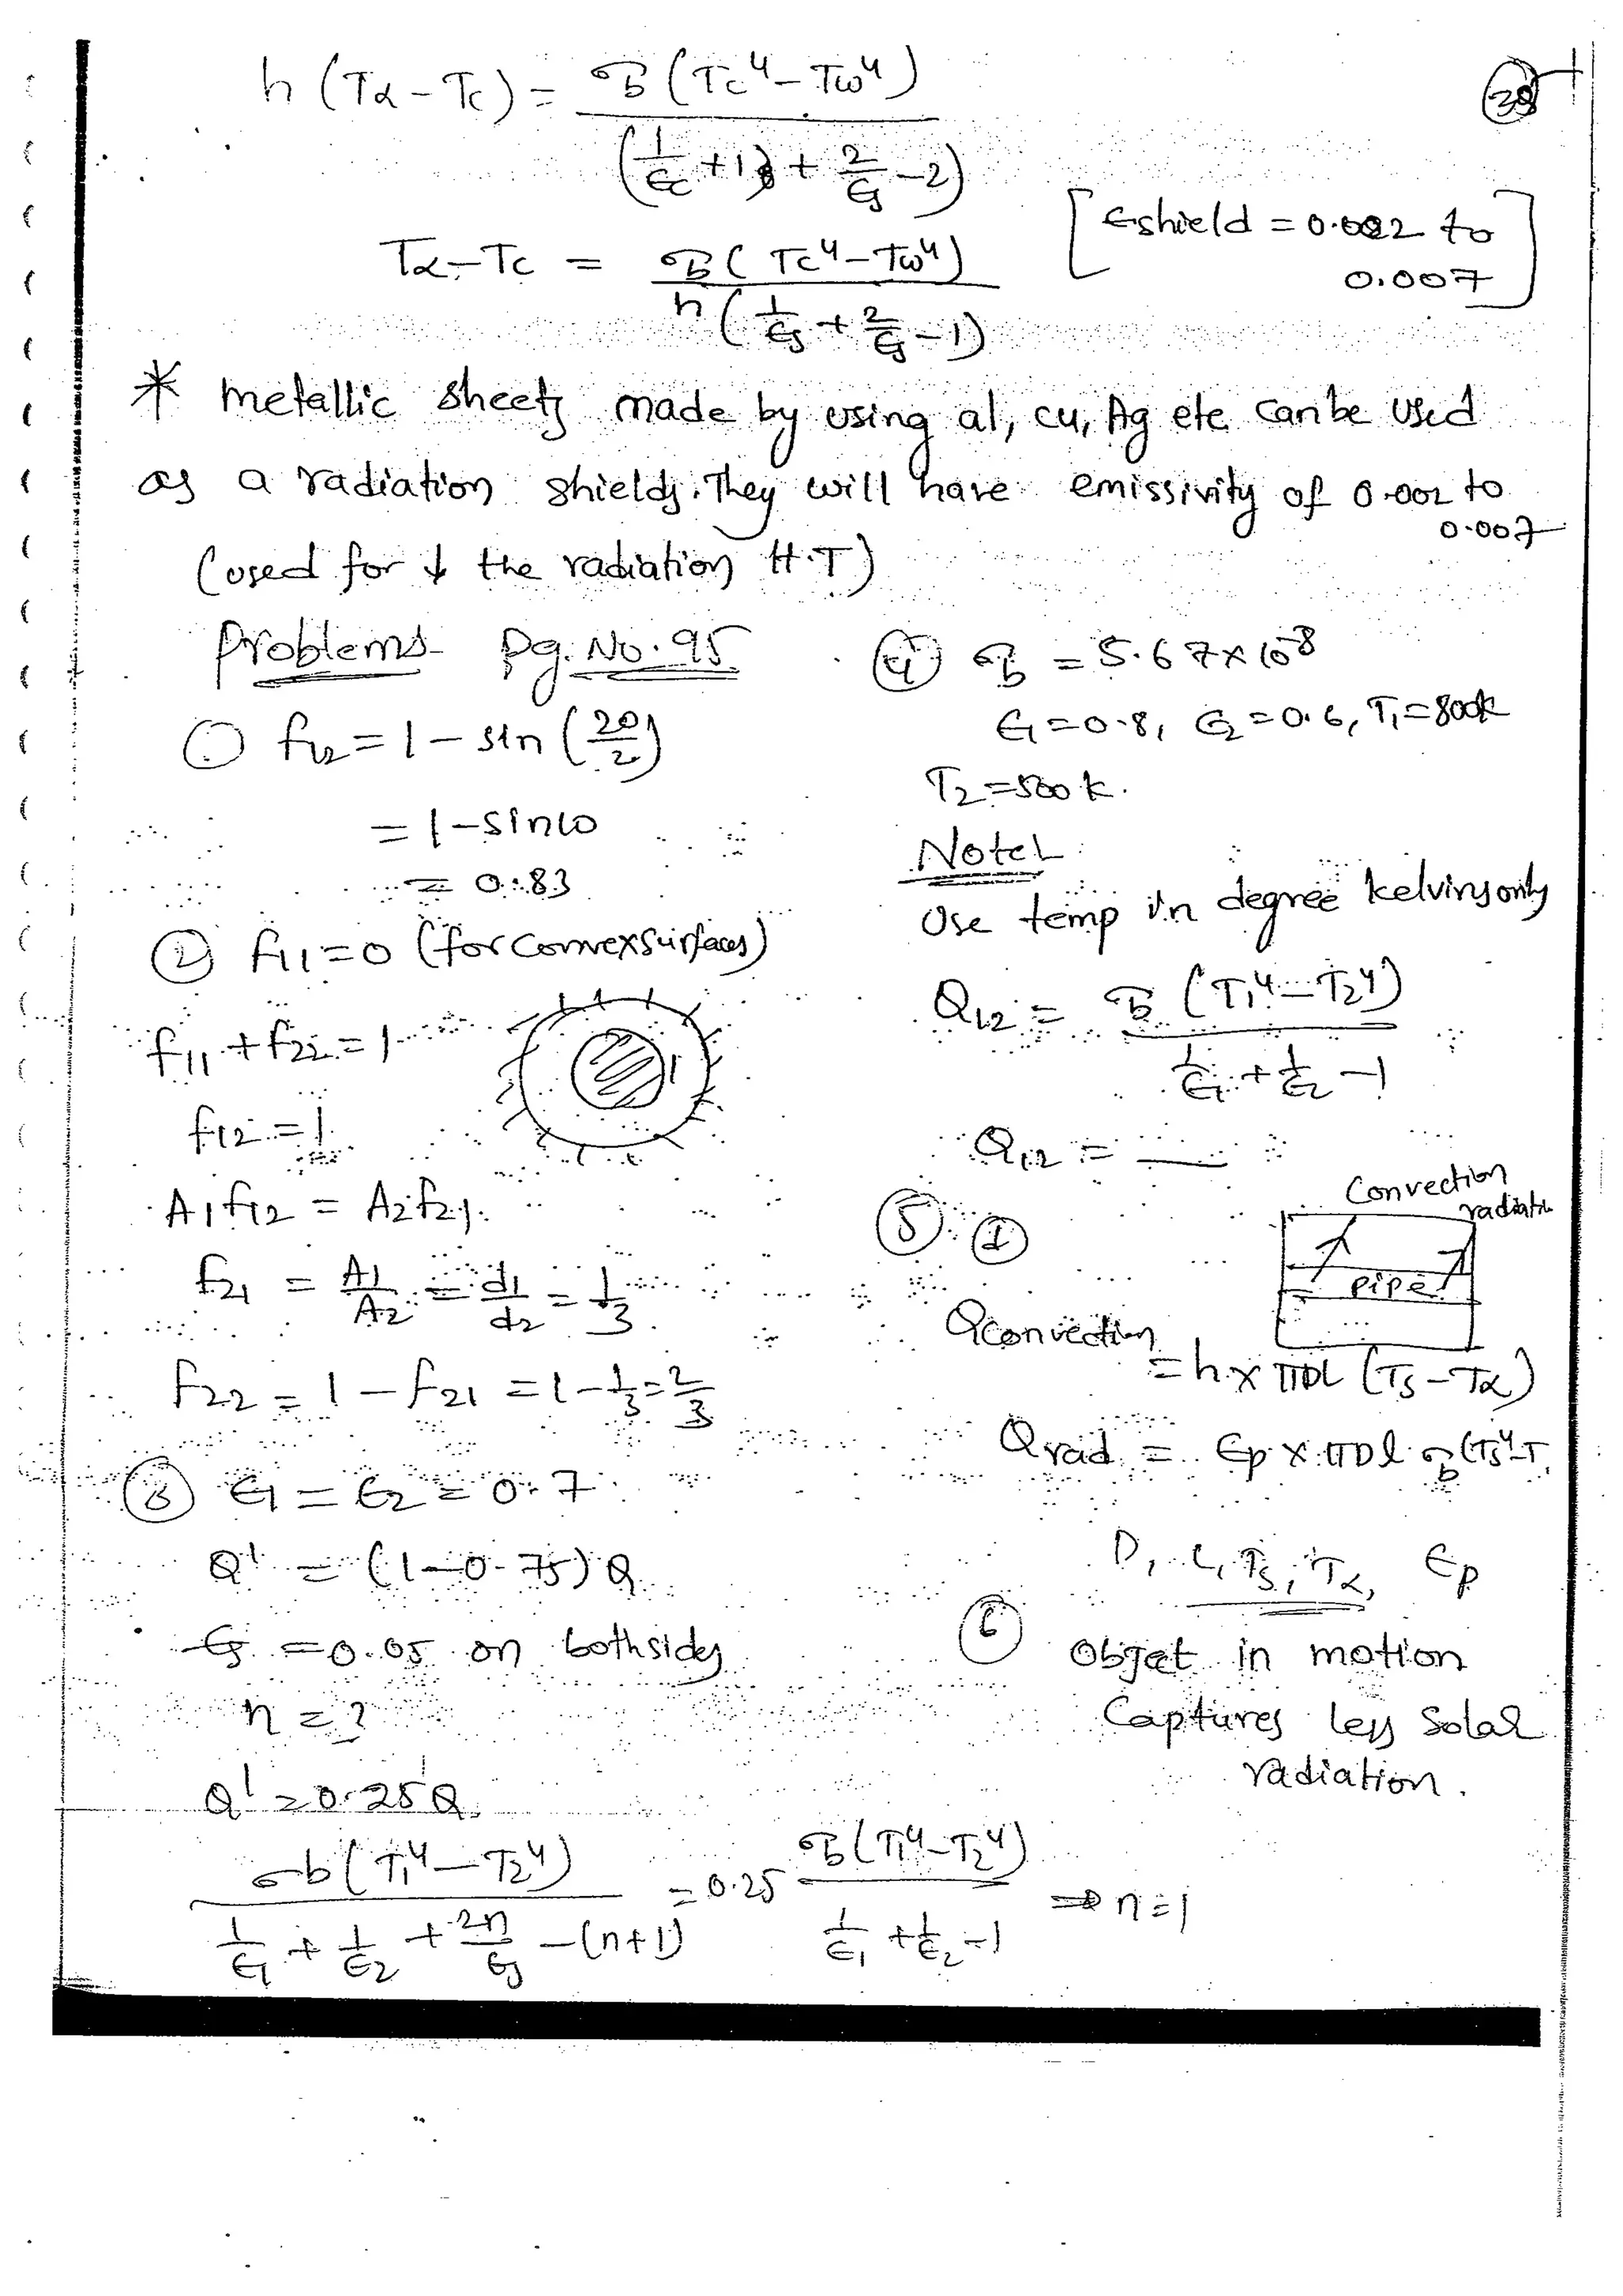 38
h (Tα - Tc) = σb (Tc⁴ - Tω⁴) / (1/εc + 1) + 2/εs - 2)
[εshield = 0.002 to 0.007]
Tα - Tc = σb (Tc⁴ - Tω⁴) / h (1/εs + 2/εs - 1)
* metallic sheets made by using al, cu, Ag etc can be used
as a radiation shields. They will have emissivity of 0.002 to
0.007
(used for ↓ the radiation H.T)
Problems Pg. No. 95
① f12 = 1 - sin (20/2)
= 1 - sin10
= 0.83
② f11 = 0 (for convex surfaces)
f11 + f22 = 1
f12 = 1
A1 f12 = A2 f21.
f21 = A1/A2 = d1/d2 = 1/3.
f22 = 1 - f21 = 1 - 1/3 = 2/3
③ ε1 = ε2 = 0.7
Q' = (1 - 0.75) Q
εs = 0.05 on both sides
n = ?
Q' = 0.25 Q.
σb (T1⁴ - T2⁴) / 1/ε1 + 1/ε2 + 2n/εs - (n+1) = 0.25 σb (T1⁴ - T2⁴) / 1/ε1 + 1/ε2 - 1 ⇒ n = 1
④ σb = 5.67 × 10⁻⁸
ε1 = 0.8, ε2 = 0.6, T1 = 800k
T2 = 500 k.
Note:
Use temp in degree kelvins only
Q12 = σb (T1⁴ - T2⁴) / 1/ε1 + 1/ε2 - 1
Q12 = ___
⑤ ①
Convection
radiati
pipe
Qconvection
= h × πDL (Ts - Tα)
Qrad = εp × πDl σb (Ts⁴ - T
D, L, Ts, Tα, εp
⑥ Object in motion
Captures less Solar
radiation.